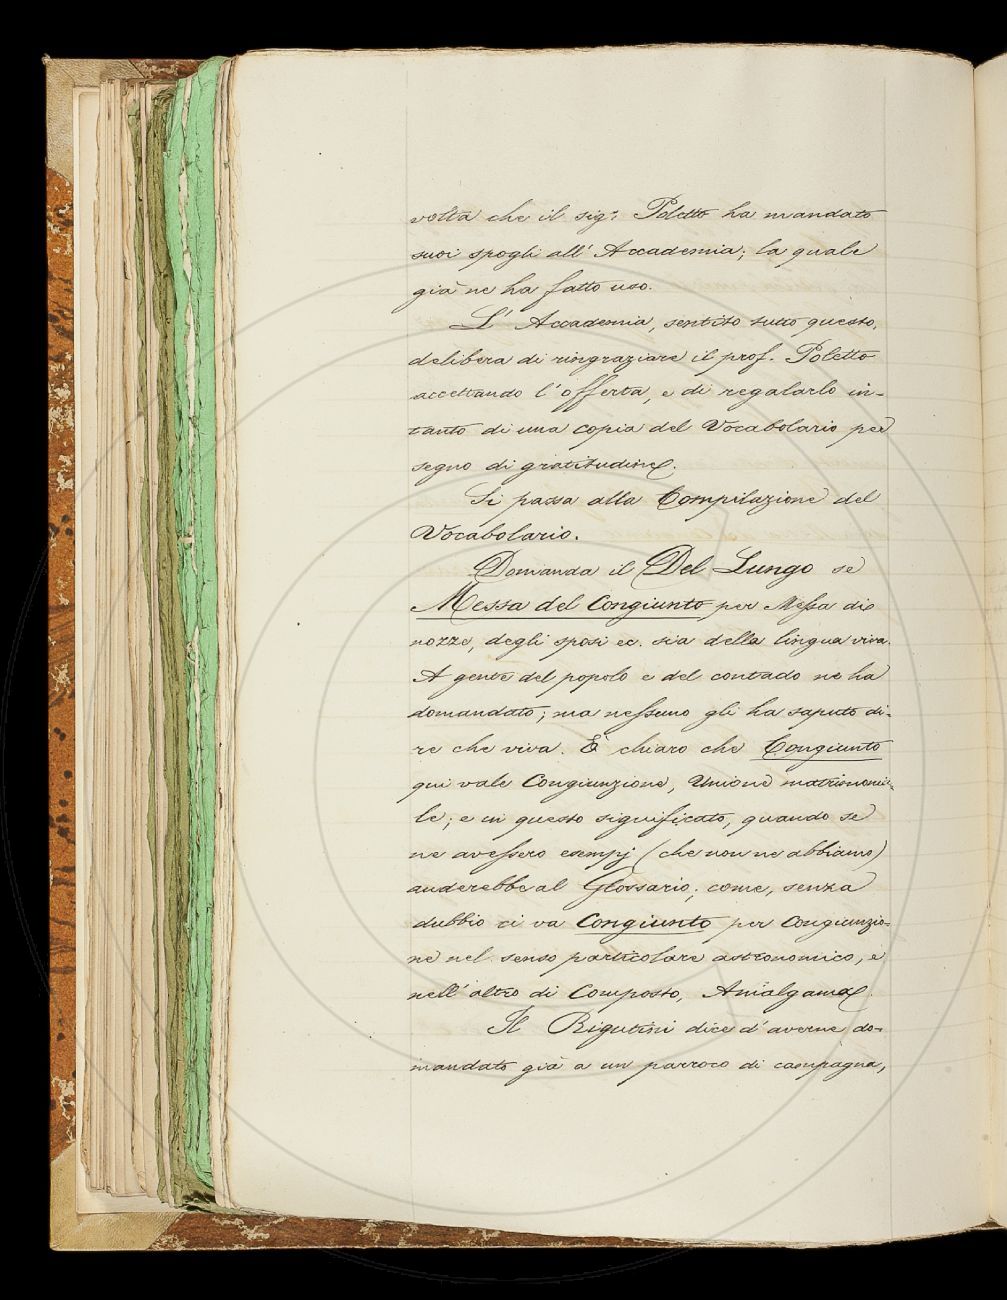 volta che il sig.r Poletto ha mandato
suoi spogli all' Accademia; la quale
già ne ha fatto uso.
L' Accademia, sentito tutto questo,
delibera di ringraziare il prof. Poletto
accettando l'offerta, e di regalarlo in-
tanto di una copia del Vocabolario per
segno di gratitudine.
Si passa alla Compilazione del
Vocabolario.
Domanda il Del Lungo se
Messa del Congiunto per Messa di
nozze, degli sposi ec. sia della lingua viva.
A gente del popolo e del contado ne ha
domandato; ma nessuno gli ha saputo di-
re che viva. È chiaro che Congiunto
qui vale Congiunzione, Unione matrimonia-
le; e in questo significato, quando se
ne avessero esempj (che non ne abbiamo)
anderebbe al Glossario; come, senza
dubbio ci va Congiunto per Congiunzio-
ne nel senso particolare astronomico, e
nell' altro di Composto, Amalgama.
Il Rigutini dice d'averne do-
mandato già a un parroco di campagna,